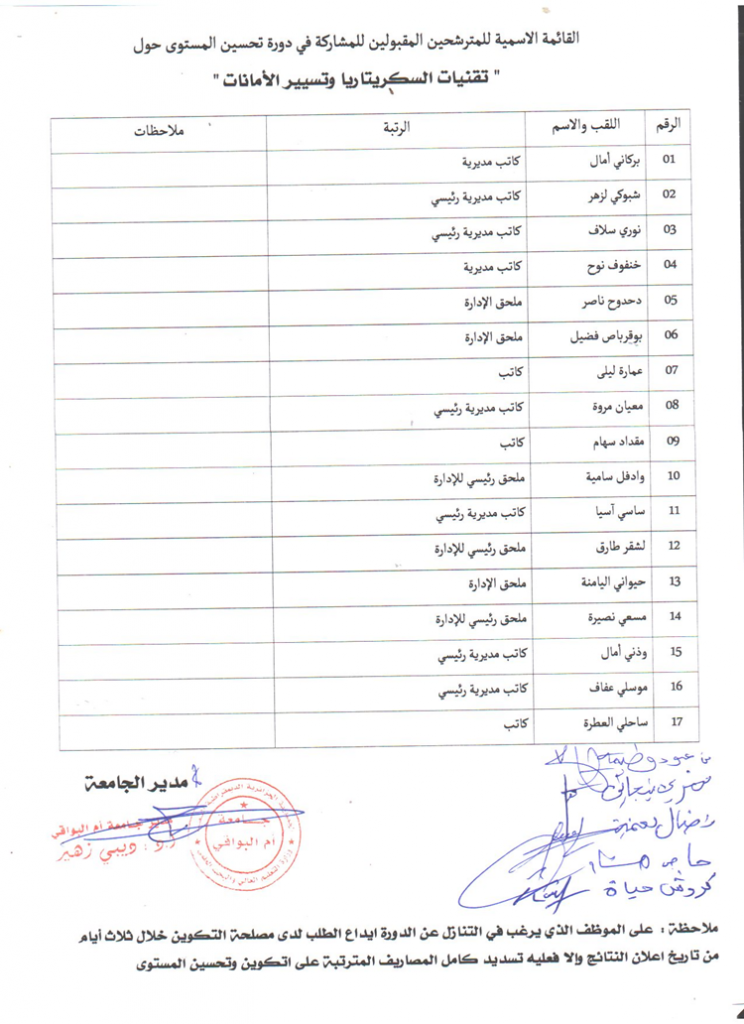 القائمة الاسمية للمترشحين المقبولين للمشاركة في دورة تحسين المستوى حول
" تقنيات السكريتاريا وتسيير الأمانات "
الرقم اللقب والاسم الرتبة ملاحظات
01 بركاني أمال كاتب مديرية
02 شبوكي لزهر كاتب مديرية رئيسي
03 نوري سلاف كاتب مديرية رئيسي
04 خنفوف نوح كاتب مديرية
05 دحدوح ناصر ملحق الإدارة
06 بوقرباص فضيل ملحق الإدارة
07 عمارة ليلى كاتب
08 معيان مروة كاتب مديرية رئيسي
09 مقداد سهام كاتب
10 وادفل سامية ملحق رئيسي للإدارة
11 ساسي آسيا كاتب مديرية رئيسي
12 لشقر طارق ملحق رئيسي للإدارة
13 حيواني اليامنة ملحق الإدارة
14 مسعي نصيرة ملحق رئيسي للإدارة
15 وذني أمال كاتب مديرية رئيسي
16 موسلي عفاف كاتب مديرية رئيسي
17 ساحلي العطرة كاتب
مدير الجامعة
مدير جامعة أم البواقي
أ.د : ديبي زهير
جامعة
أم البواقي
حياة
ملاحظة : على الموظف الذي يرغب في التنازل عن الدورة ايداع الطلب لدى مصلحة التكوين خلال ثلاث أيام
من تاريخ اعلان النتائج وإلا فعليه تسديد كامل المصاريف المترتبة على اتكوين وتحسين المستوى